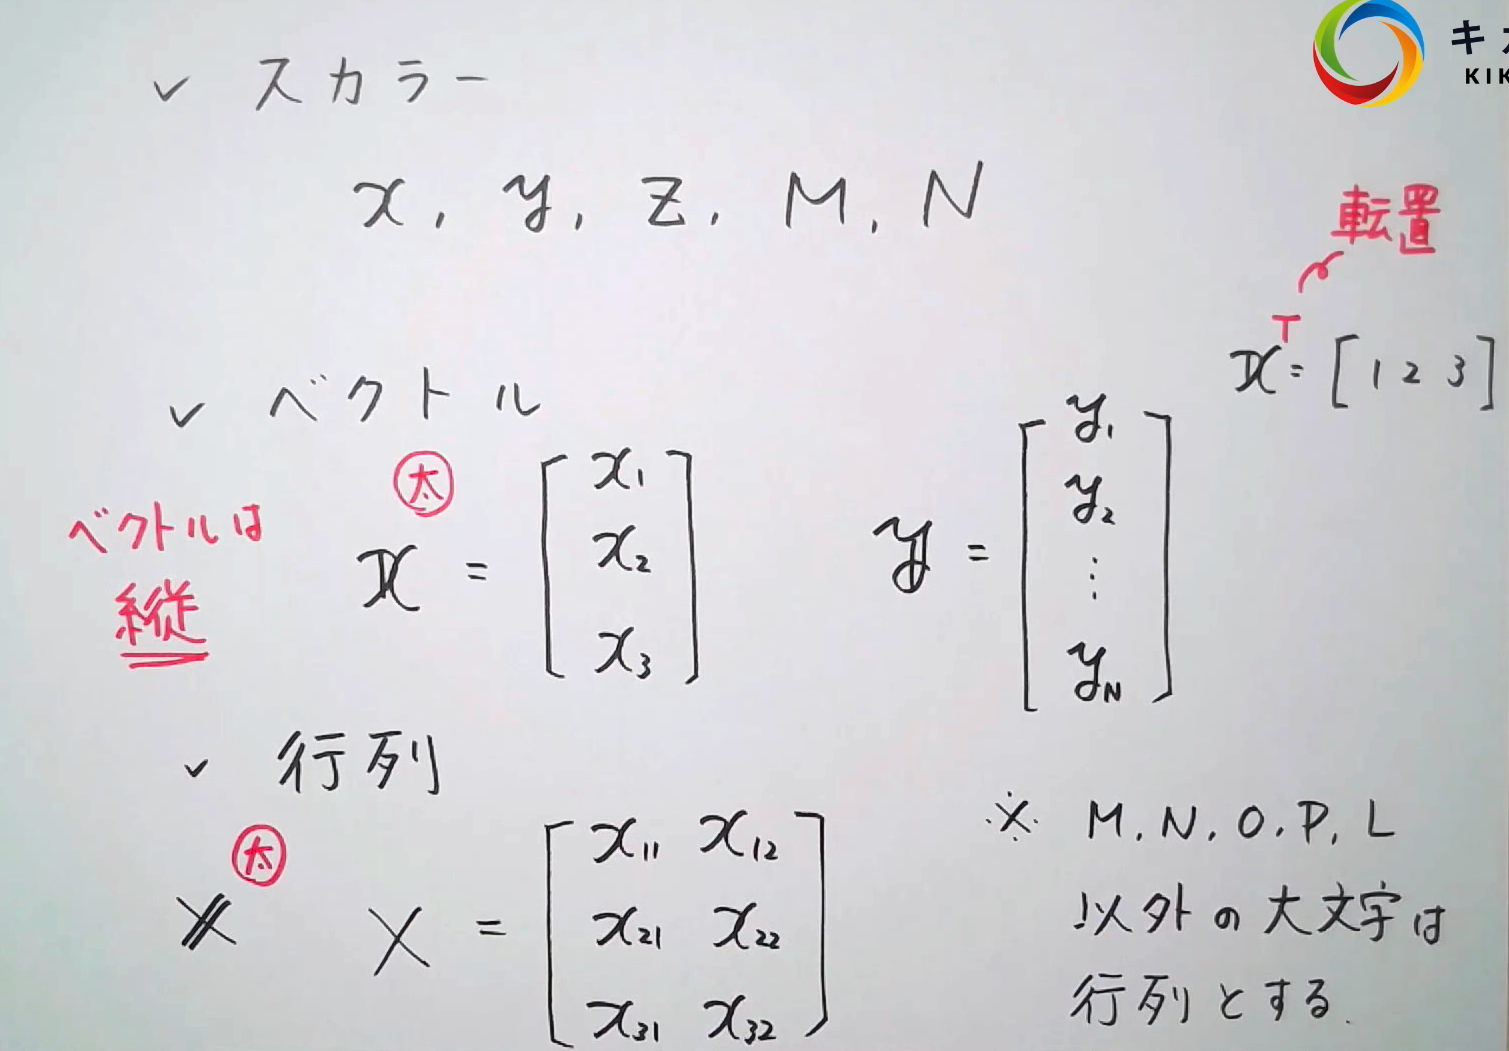 ✓ スカラー
x, y, z, M, N
転置
x^T = [ 1 2 3 ]
✓ ベクトル
太
ベクトルは
縦
x = [ x1
x2
x3 ]
y = [ y1
y2
⋮
yN ]
✓ 行列
太
X X = [ x11 x12
x21 x22
x31 x32 ]
※ M, N, O, P, L
以外の大文字は
行列とする.
キ
KIK